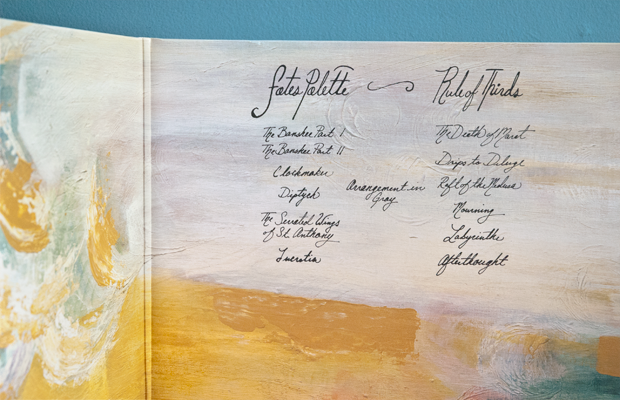 Fates Palette
The Banshee Part I
The Banshee Part II
Clockmaker
Diptych
The Serrated Wings
of St. Anthony
Lucretia
Arrangement in
Gray
Rule of Thirds
The Death of Marat
Drips to Deluge
Raft of the Medusa
Mourning
Labyrinthe
Afterthought